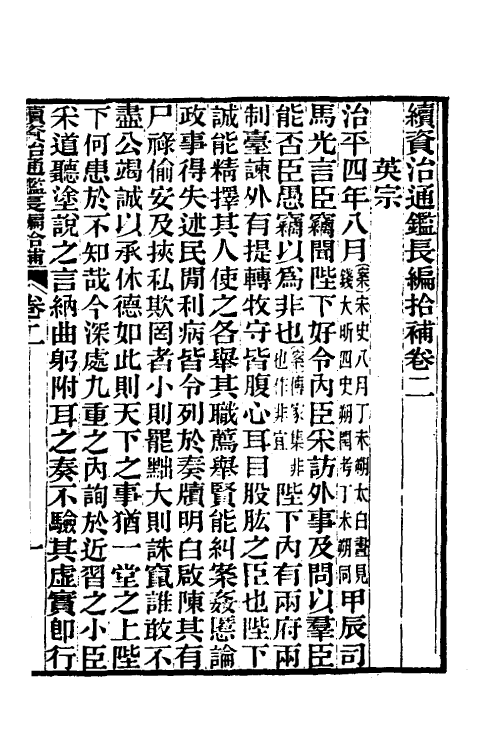 續資治通鑑長編拾補卷二
英宗
治平四年八月案宋史八月丁未朔太白晝見錢大昕四史朔閏考丁未朔同甲辰司
馬光言臣竊聞陛下好令內臣采訪外事及問以羣臣
能否臣愚竊以爲非也案傳家集非也作非宜陛下內有兩府兩
制臺諫外有提轉牧守皆腹心耳目股肱之臣也陛下
誠能精擇其人使之各舉其職薦舉賢能糾案姦慝論
政事得失述民閒利病皆令列於奏牘明白啟陳其有
尸祿偷安及挾私欺罔者小則罷黜大則誅竄誰敢不
盡公竭誠以承休德如此則天下之事猶一堂之上陛
下何患於不知哉今深處九重之內詢於近習之小臣
采道聽塗說之言納曲躬附耳之奏不驗其虛實卽行
續資治通鑑長編拾補 卷二 一